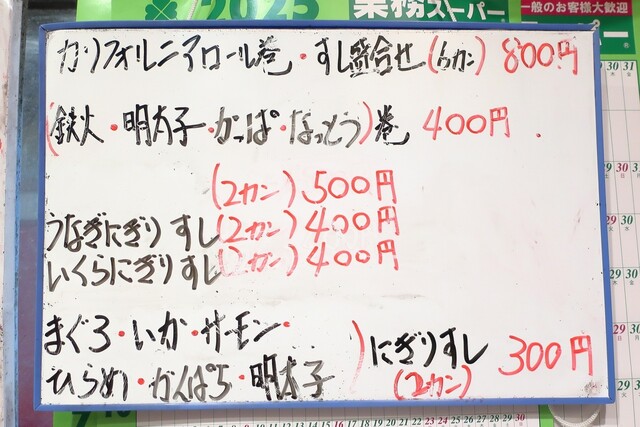 2025
業務スーパー
一般のお客様大歓迎
カリフォルニアロール巻・すし盛合せ(6カン) 800円
(鉄火・明太子・かっぱ・なっとう)巻 400円
(2カン) 500円
うなぎにぎりすし(2カン) 400円
いくらにぎりすし(2カン) 400円
まぐろ・いか・サーモン・
ひらめ・かんぱち・明太子
)にぎりすし 300円
(2カン)